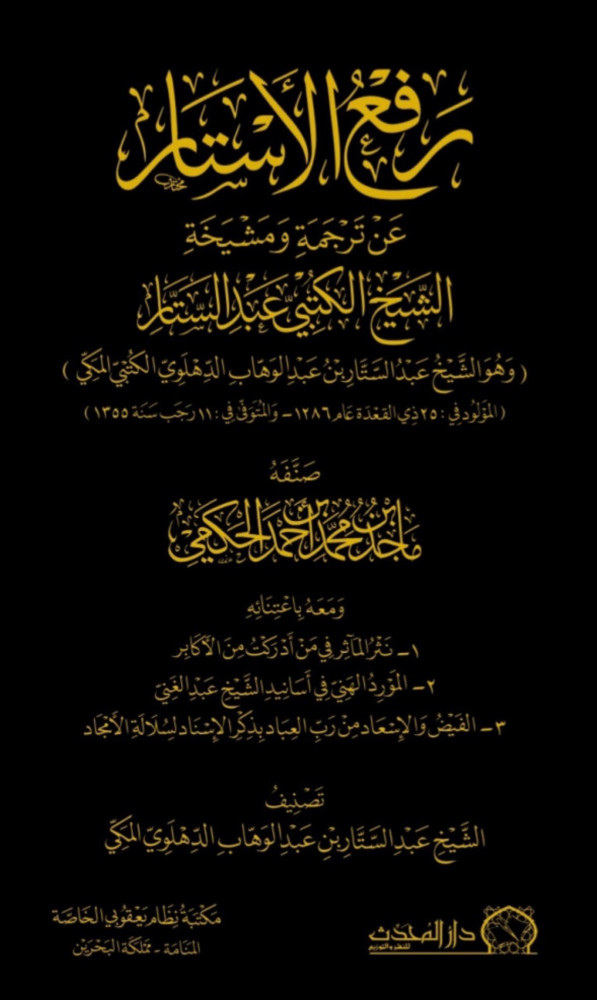 رَفْعُ الأَسْتَار
عَنْ تَرْجَمَةِ وَمَشْيَخَةِ
الشَّيْخِ الكُتُبِيِّ عَبْدِ السَّتَّارِ
(وَهُوَ الشَّيْخُ عَبْدُ السَّتَّارِ بْنُ عَبْدِ الوَهَّابِ الدِّهْلَوِيّ الكُتُبِيّ المَكِّيّ)
(المَوْلُودُ فِي: ٢٥ ذِي القَعْدَة عَام ١٢٨٦ - وَالمُتَوَفَّى فِي: ١١ رَجَب سَنَة ١٣٥٥)
صَنَّفَهُ
مَاجِدُ بْنُ مُحَمَّدِ بْنِ أَحْمَدَ الحَكَمِيّ
وَمَعَهُ بِاعْتِنَائِهِ
١- نَثْرُ المَآثِرِ فِي مَنْ أَدْرَكْتُ مِنَ الأَكَابِر
٢- المَوْرِدُ الهَنِيّ فِي أَسَانِيدِ الشَّيْخِ عَبْدِ الغَنِيّ
٣- الفَيْضُ وَالإِسْعَاد مِنْ رَبِّ العِبَاد بِذِكْرِ الإِسْنَاد لِسُلَالَةِ الأَمْجَاد
تَصْنِيفُ
الشَّيْخِ عَبْدِ السَّتَّارِ بْنِ عَبْدِ الوَهَّابِ الدِّهْلَوِيّ المَكِّيّ
دار المُحَدّث
للنشر والتوزيع
مَكْتَبَةُ نِظَام يَعْقُوبِي الخَاصَّة
المَنَامَة - مَمْلَكَة البَحْرَيْن